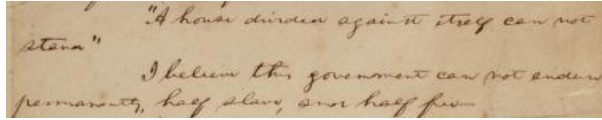 "A house divided against itself can not
stand"
I believe this government can not endure
permanently, half slave, and half free